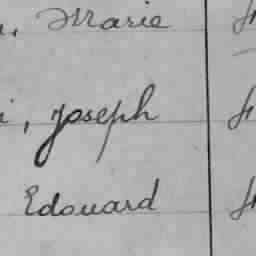 , Marie
i, Joseph
Edouard